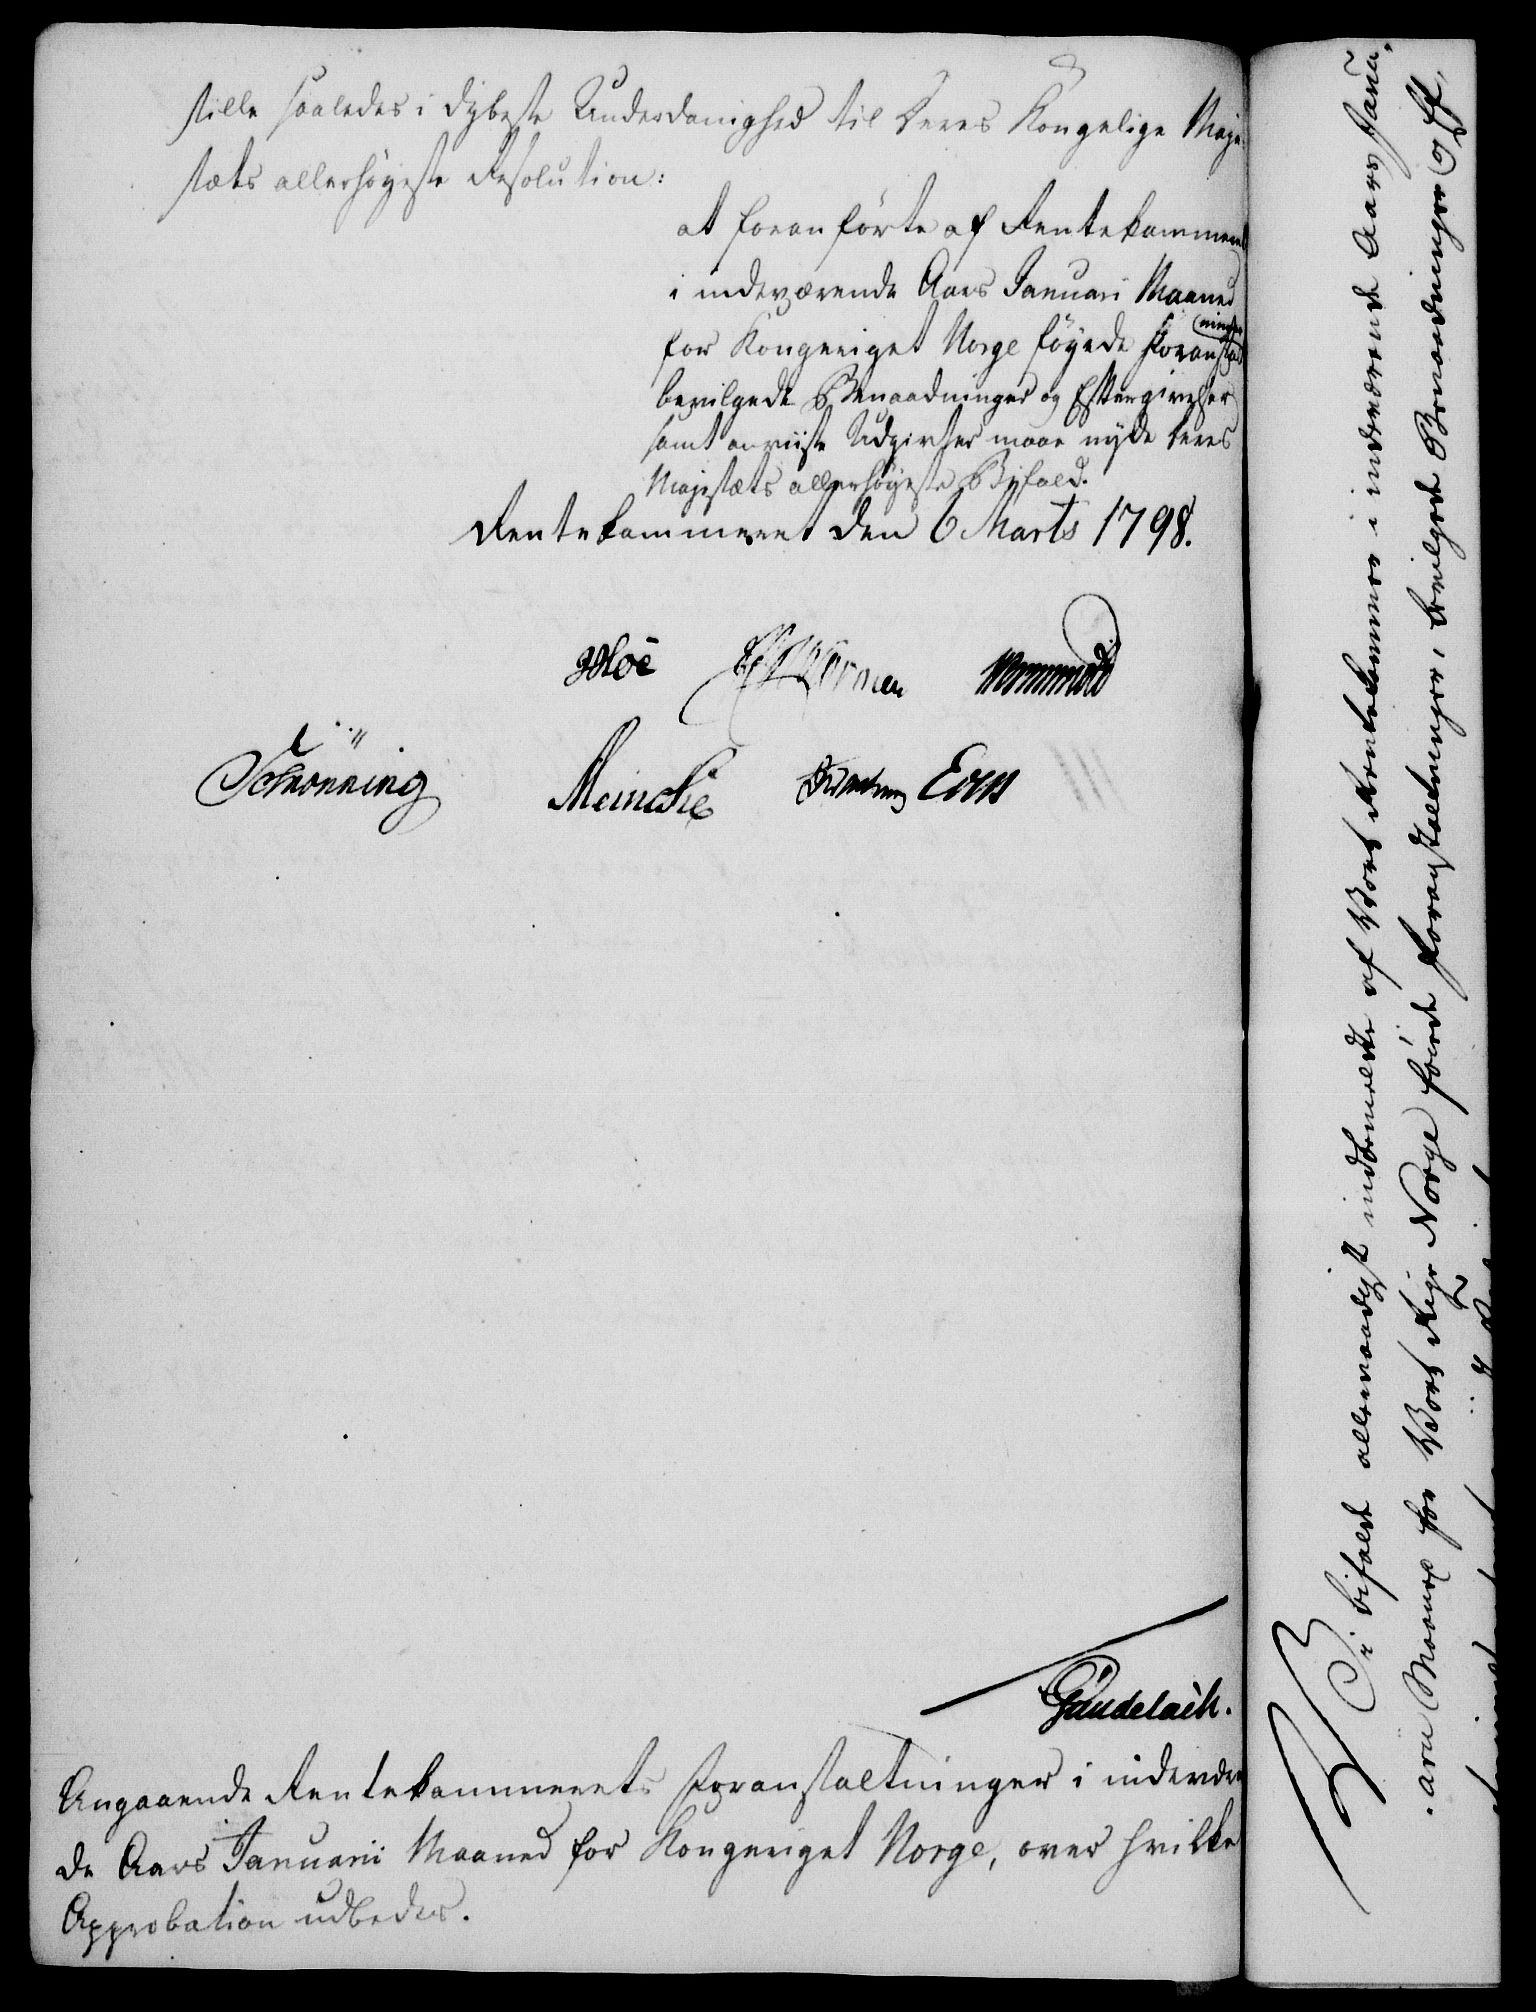 stille saaledes i dybeste Underdanighed til Deres Kongelige Maje-
stæts allerhøyeste Resolution:
at foranførte af Rentekammeret
i indeværende Aars Januari Maaned
for Kongeriget Norge føyede Foranstalt
ninger
bevilgede Benaadninger og Eftergivelser
samt anviiste Udgivter maae nyde Deres
Majestæts allerhøyeste Byfald.
Rentekammeret den 6 Marts 1798.
Schønning Meincke
Gûndelach.
Angaaende Rentekammerets Foranstaltninger i indeværen
de Aars Januarii Maaned for Kongeriget Norge, over hvilke
Approbation udbedes.
Vi bifalde allernaadigst indbemeldte af Vort Rentekammer i indeværende Aars Janu-
arii Maaned for Vort Rige Norge føiede Foranstaltninger, bevilgede Benaadninger og Ef-